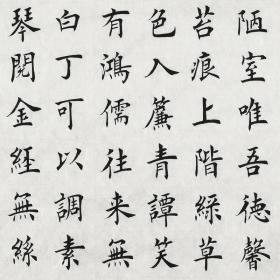 陋室唯吾徳馨
苔痕上階綠草
色入簾青譚笑
有鴻儒往来無
白丁可以調素
琴閱金經無絲